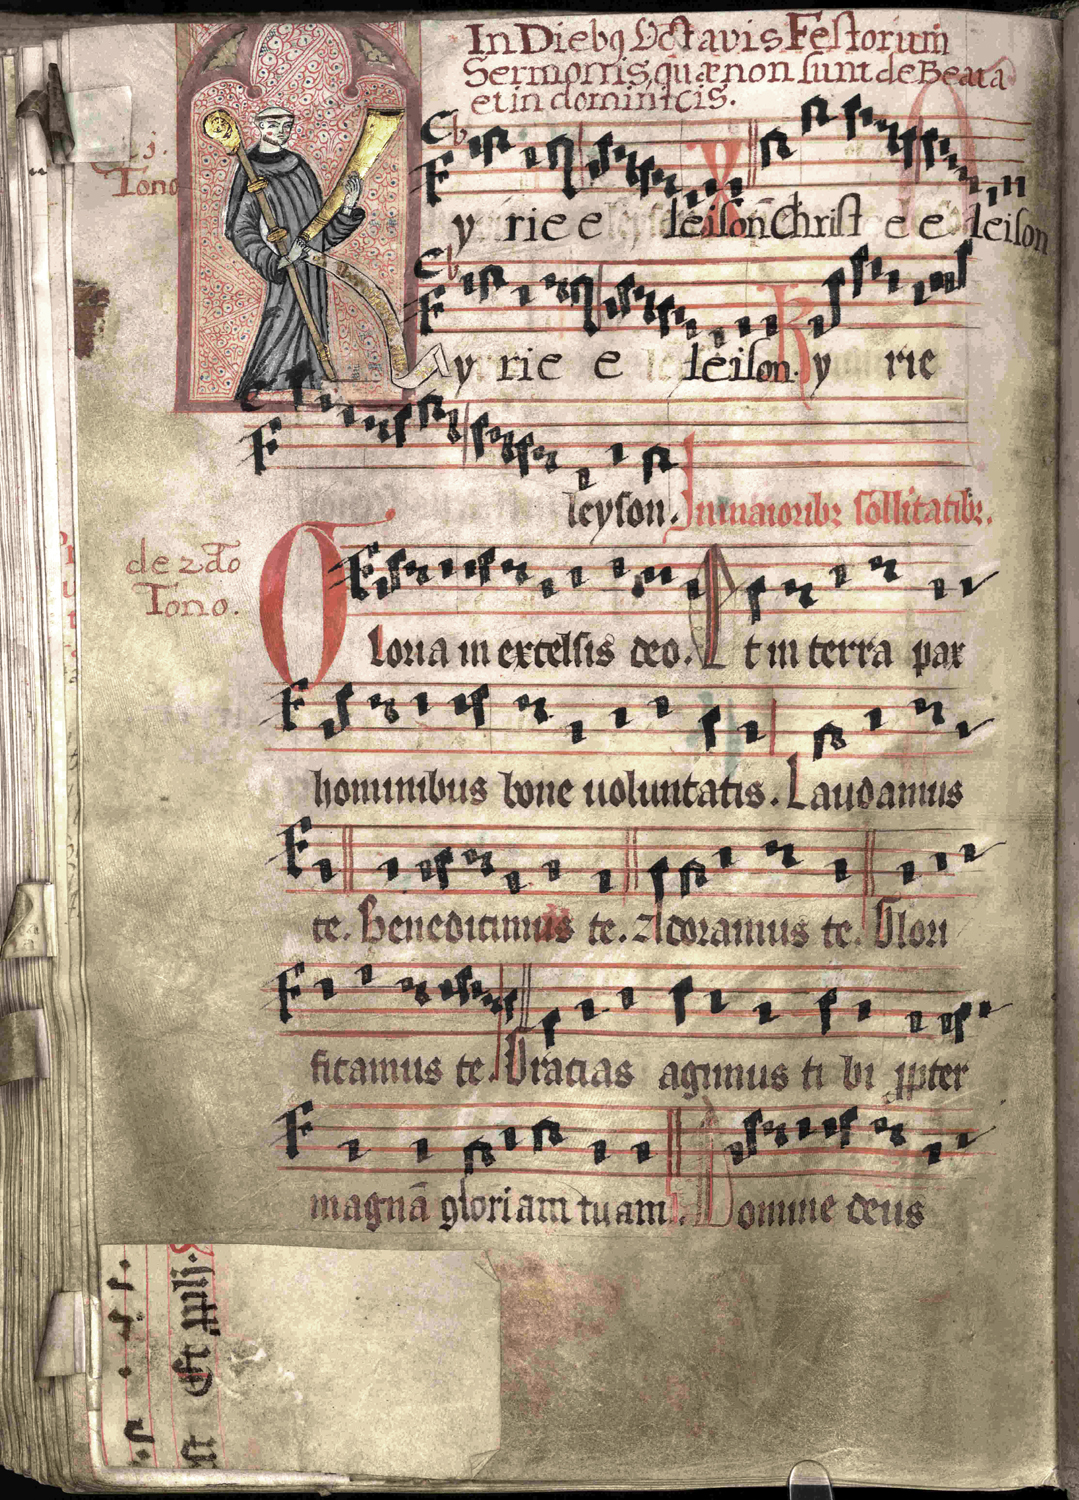 In Diebq Octavis Festorum
Sermonis, quæ non sunt de Beata
et in dominicis.
Tono
y rie e leison Christ e e leison
y rie e leison. y rie
leyson. In maioribz sollitatibz.
de 2do
Tono.
Gloria in excelsis deo. Et in terra pax
hominibus bone uoluntatis. Laudamus
te. Benedicimus te. Adoramus te. Glori
ficamus te. Gratias agimus ti bi ppter
magnā gloriam tuam. Domine deus